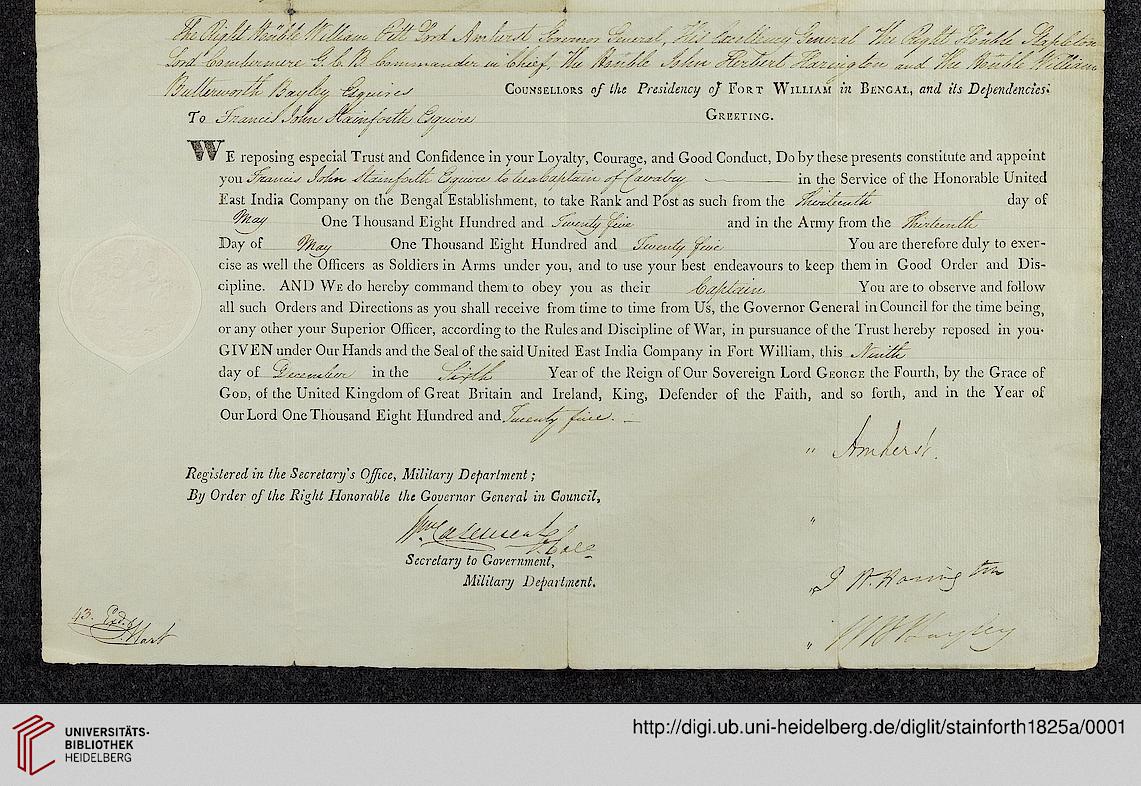 The Right Honble William Pitt Lord Amherst Governor General, His Excellency General The Right Honble Stapleton
Lord Combermere G.C.B. Commander in Chief, The Honble John Herbert Harington and The Honble William
Butterworth Bayley Esquires COUNSELLORS of the Presidency of FORT WILLIAM in BENGAL, and its Dependencies.
To Francis John Stainforth Esquire GREETING.
WE reposing especial Trust and Confidence in your Loyalty, Courage, and Good Conduct, Do by these presents constitute and appoint
you Francis John Stainforth Esquire to be a Captain of Cavalry in the Service of the Honorable United
East India Company on the Bengal Establishment, to take Rank and Post as such from the Thirteenth day of
May One Thousand Eight Hundred and Twenty five and in the Army from the Thirteenth
Day of May One Thousand Eight Hundred and Twenty five You are therefore duly to exer-
cise as well the Officers as Soldiers in Arms under you, and to use your best endeavours to keep them in Good Order and Dis-
cipline. AND WE do hereby command them to obey you as their Captain You are to observe and follow
all such Orders and Directions as you shall receive from time to time from Us, the Governor General in Council for the time being,
or any other your Superior Officer, according to the Rules and Discipline of War, in pursuance of the Trust hereby reposed in you.
GIVEN under Our Hands and the Seal of the said United East India Company in Fort William, this Ninth
day of December in the Sixth Year of the Reign of Our Sovereign Lord GEORGE the Fourth, by the Grace of
GOD, of the United Kingdom of Great Britain and Ireland, King, Defender of the Faith, and so forth, and in the Year of
Our Lord One Thousand Eight Hundred and Twenty five.
" Amherst.
Registered in the Secretary's Office, Military Department;
By Order of the Right Honorable the Governor General in Council,
"
Wm Casement
Lt. Col.
Secretary to Government,
Military Department.
" J H Harington
43. Exd.
" W B Bayley
UNIVERSITÄTS-
BIBLIOTHEK
HEIDELBERG
http://digi.ub.uni-heidelberg.de/diglit/stainforth1825a/0001